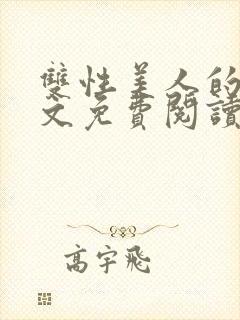 雙性美人的
文免費閱讀
高宇飛